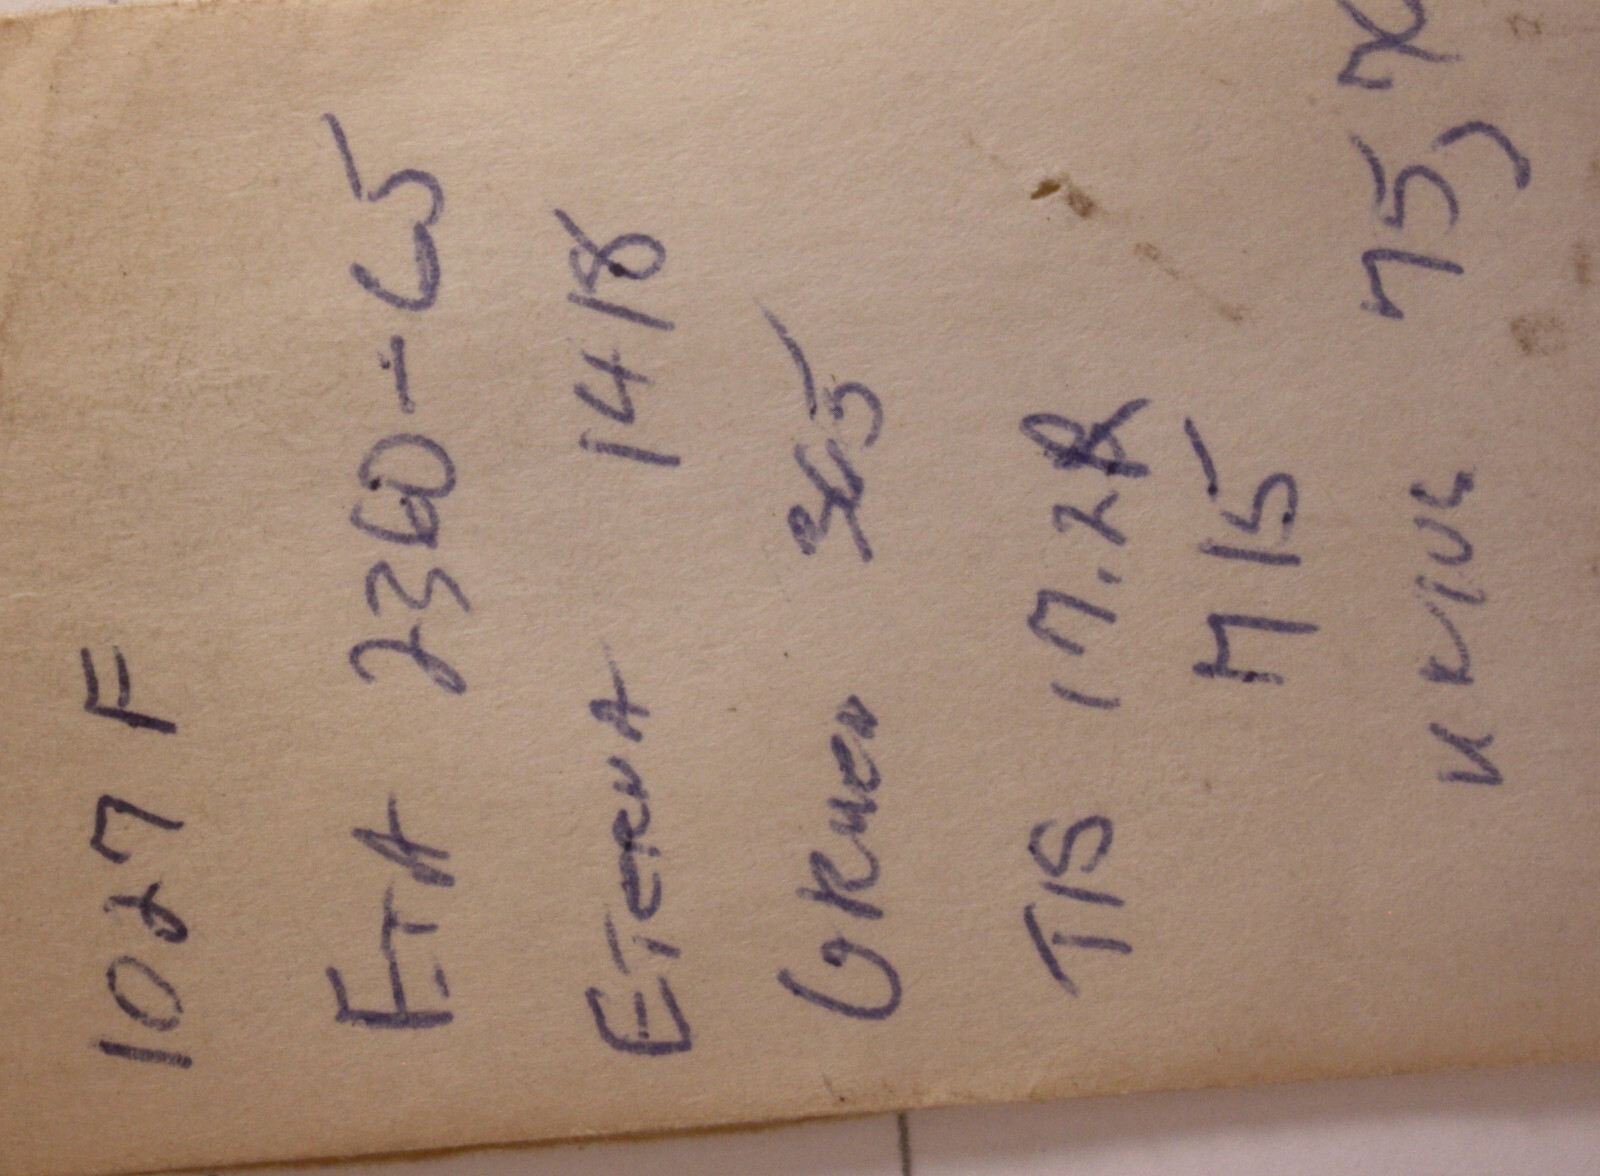 1027 F
ETA 2360-C5
ETERNA 1418
GRUEN
TIS 17.2R
M 15
75,